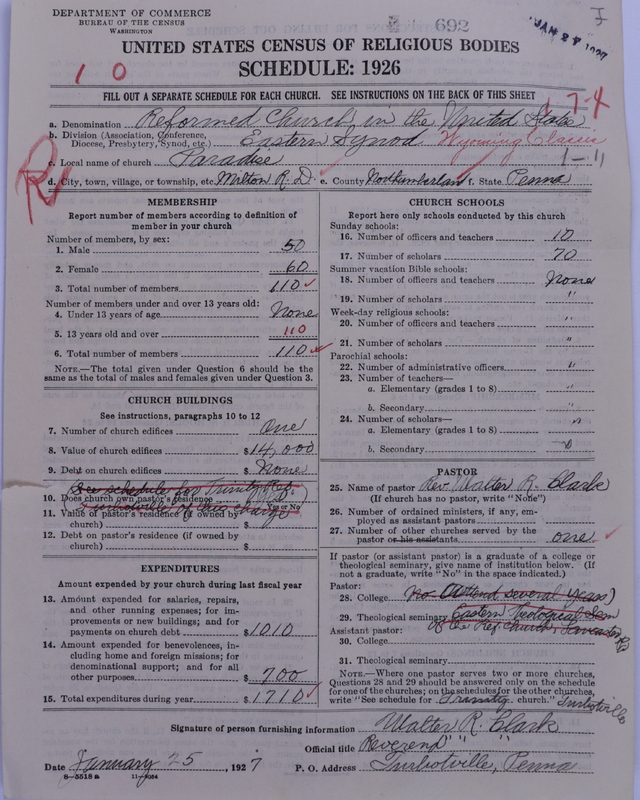 DEPARTMENT OF COMMERCE
BUREAU OF THE CENSUS
WASHINGTON
692
JAN 27 1927
UNITED STATES CENSUS OF RELIGIOUS BODIES
SCHEDULE: 1926
1 0
FILL OUT A SEPARATE SCHEDULE FOR EACH CHURCH. SEE INSTRUCTIONS ON THE BACK OF THIS SHEET
1 7-4
a. Denomination Reformed Church in the United States
b. Division (Association, Conference, Diocese, Presbytery, Synod, etc.) Eastern Synod Wyoming Classis
c. Local name of church Paradise 1-11
R
d. City, town, village, or township, etc. Milton R.D. e. County Northumberland f. State Penna
MEMBERSHIP
Report number of members according to definition of
member in your church
Number of members, by sex:
1. Male 50
2. Female 60
3. Total number of members 110
Number of members under and over 13 years old:
4. Under 13 years of age None
5. 13 years old and over 110
6. Total number of members 110
NOTE.—The total given under Question 6 should be the
same as the total of males and females given under Question 3.
CHURCH BUILDINGS
See instructions, paragraphs 10 to 12
7. Number of church edifices One
8. Value of church edifices $14,000
9. Debt on church edifices $ None
See schedule for Trinity Ref.
10. Does church own pastor's residence Yes or No
Turbotville of this charge
11. Value of pastor's residence (if owned by
church) $
12. Debt on pastor's residence (if owned by
church) $
EXPENDITURES
Amount expended by your church during last fiscal year
13. Amount expended for salaries, repairs,
and other running expenses; for im-
provements or new buildings; and for
payments on church debt $1010
14. Amount expended for benevolences, in-
cluding home and foreign missions; for
denominational support; and for all
other purposes $ 700
15. Total expenditures during year $1710
CHURCH SCHOOLS
Report here only schools conducted by this church
Sunday schools:
16. Number of officers and teachers 10
17. Number of scholars 70
Summer vacation Bible schools:
18. Number of officers and teachers None
19. Number of scholars "
Week-day religious schools:
20. Number of officers and teachers "
21. Number of scholars "
Parochial schools:
22. Number of administrative officers "
23. Number of teachers—
a. Elementary (grades 1 to 8) "
b. Secondary "
24. Number of scholars—
a. Elementary (grades 1 to 8) "
b. Secondary "
PASTOR
25. Name of pastor Rev. Walter R. Clark
(If church has no pastor, write "None")
26. Number of ordained ministers, if any, em-
ployed as assistant pastors
27. Number of other churches served by the
pastor or his assistants one
If pastor (or assistant pastor) is a graduate of a college or
theological seminary, give name of institution below. (If
not a graduate, write "No" in the space indicated.)
Pastor:
28. College No (Attend several years)
29. Theological seminary Eastern Theological Sem
of the Ref. Church, Lancaster Pa
Assistant pastor:
30. College
31. Theological seminary
NOTE.—Where one pastor serves two or more churches,
Questions 28 and 29 should be answered only on the schedule
for one of the churches; on the schedules for the other churches,
write "See schedule for Trinity church." Turbotville
Signature of person furnishing information Walter R. Clark
Official title Reverend " " "
Date January 25, 1927 P. O. Address Turbotville, Penna
8—5518a 11—9064